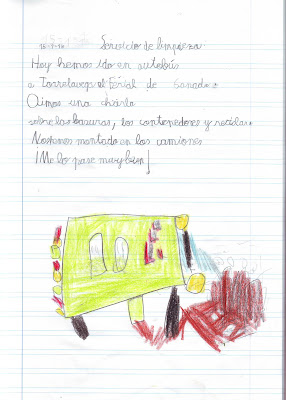 Servicio de limpieza
Hoy hemos ido en autobús
a Torrelavega al Ferial de Ganado
Oimos una charla
sobre las basuras, los contenedores y reciclar
Nos hemos montado en los camiones
¡Me lo pase muy bien!